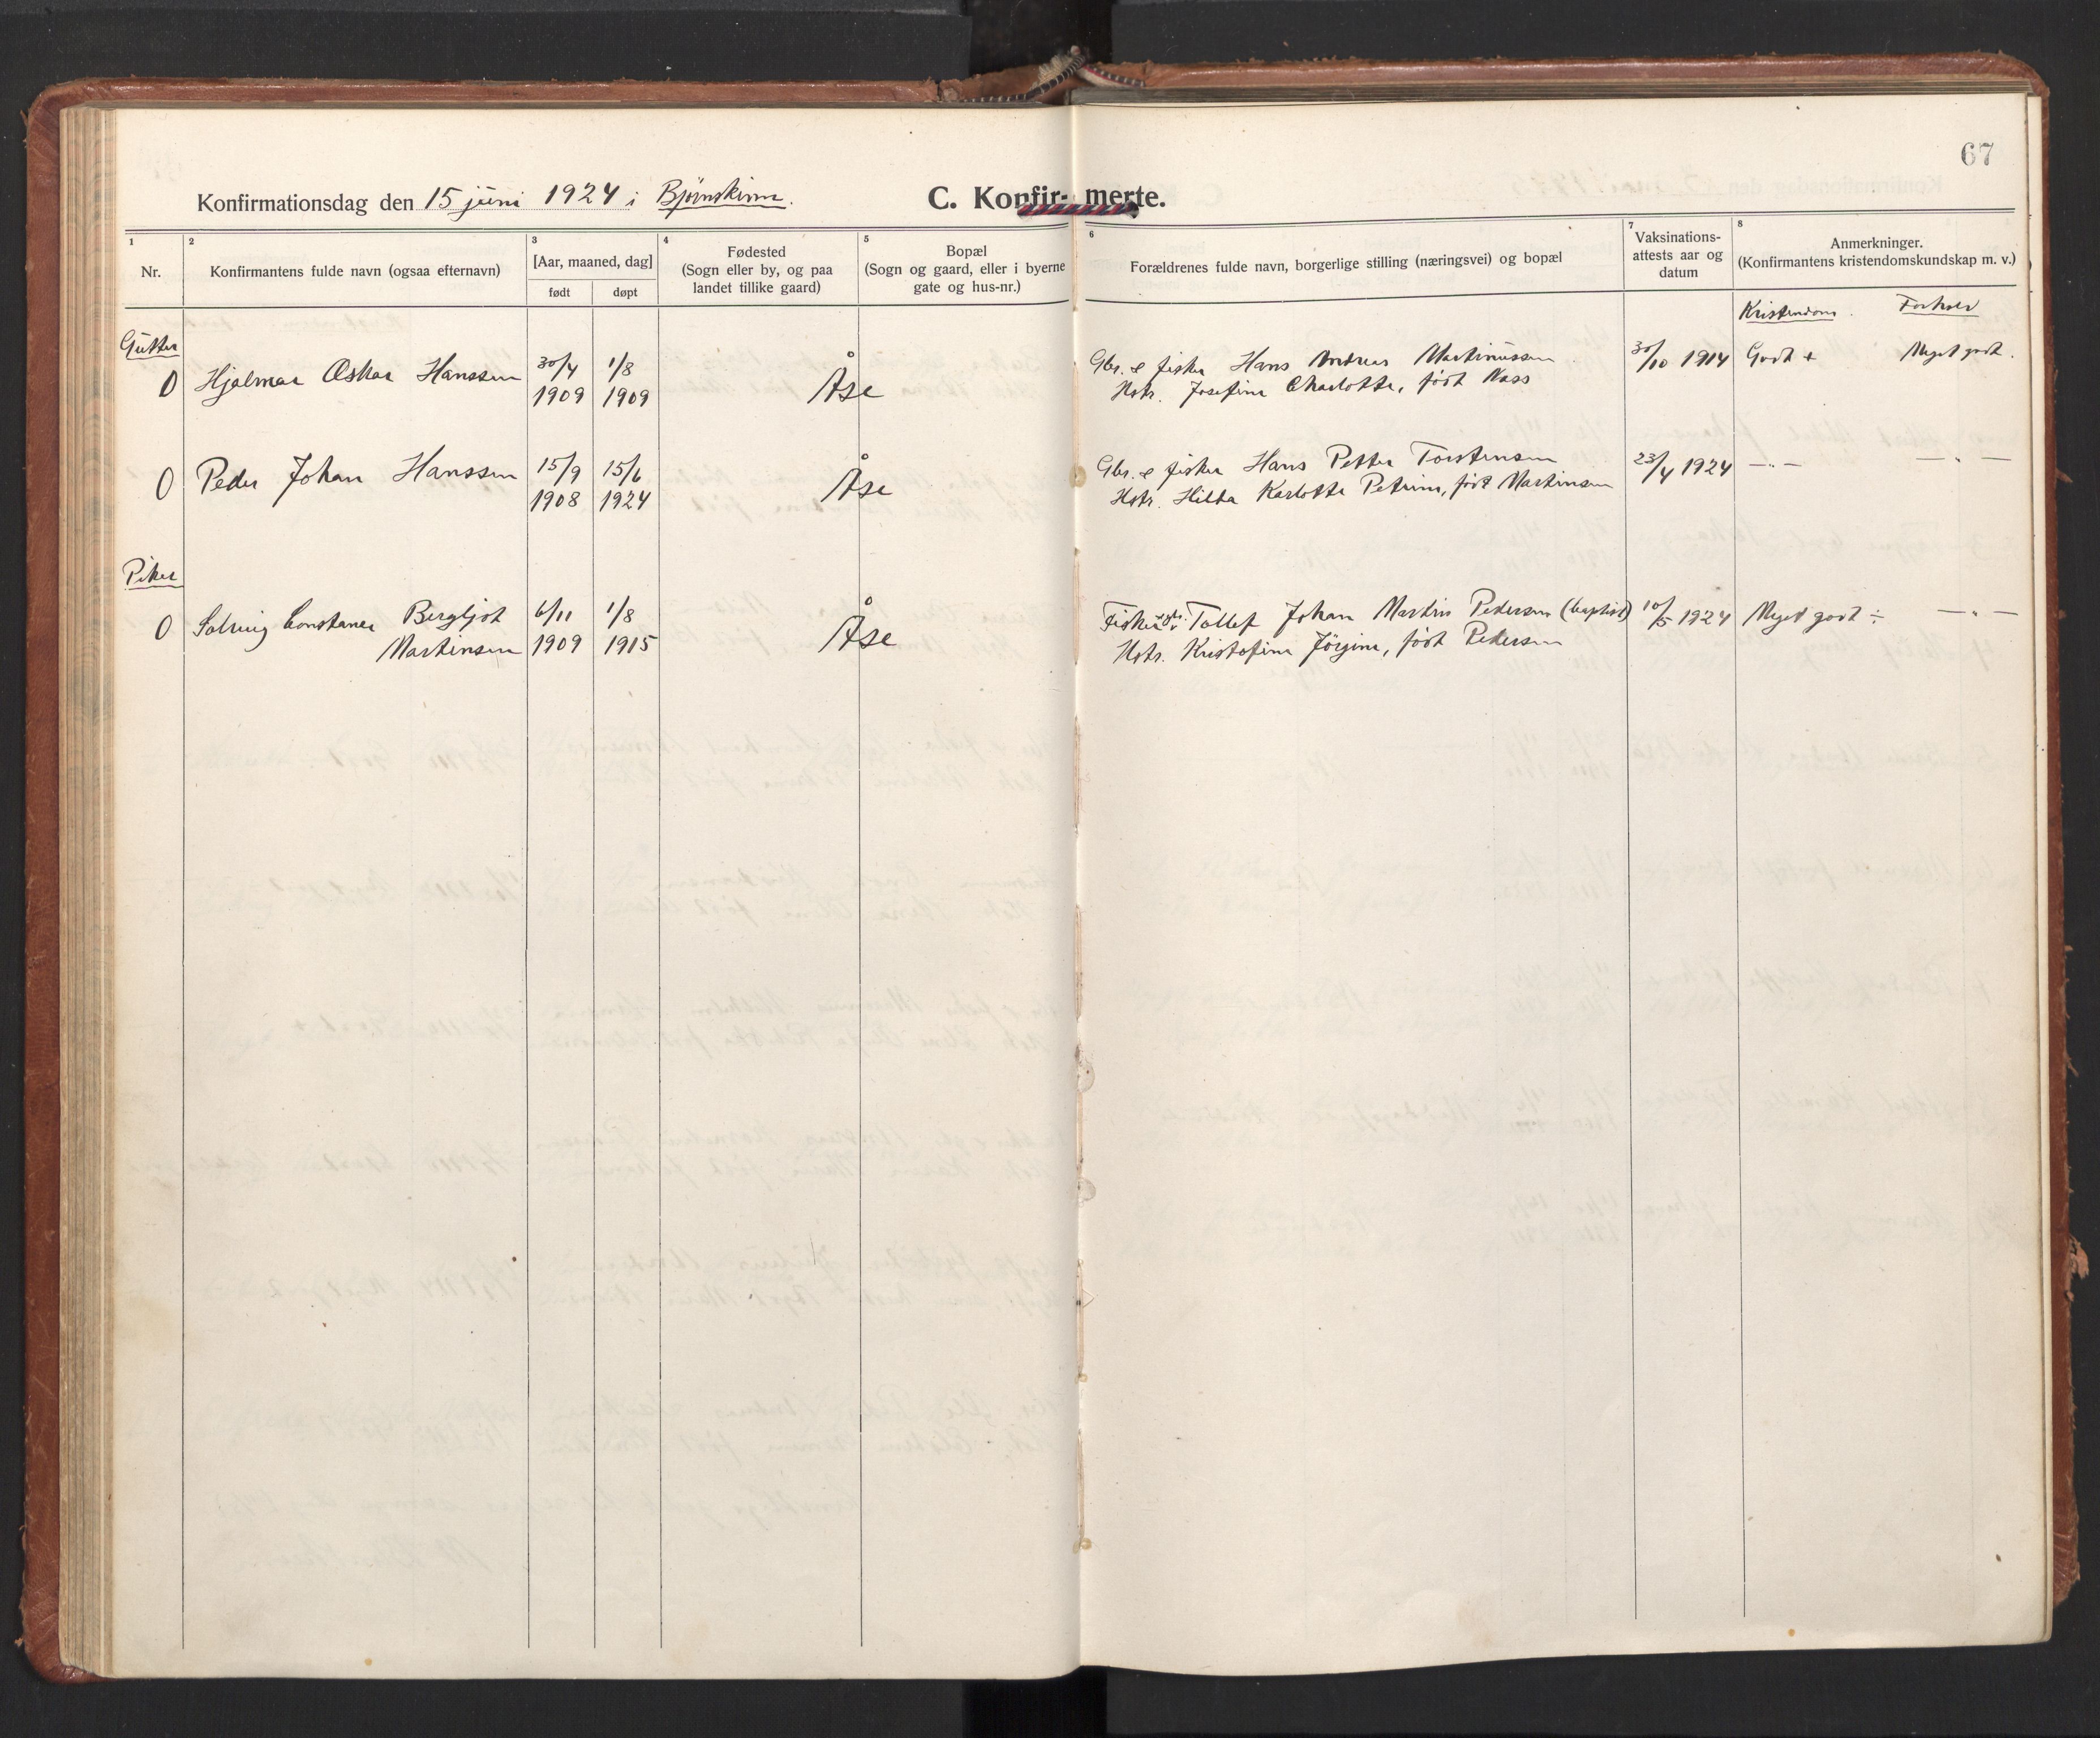 67
Konfirmationsdag den 15 juni 1924 i Bjørnskinn.
C. Konfir- merte.
1 2 3 4 5 6 7 8
Nr.
Konfirmantens fulde navn (ogsaa efternavn)
[Aar, maaned, dag]
født døpt
Fødested
(Sogn eller by, og paa
landet tillike gaard)
Bopæl
(Sogn og gaard, eller i byerne
gate og hus-nr.)
Forældrenes fulde navn, borgerlige stilling (næringsvei) og bopæl
Vaksinations-
attests aar og
datum
Anmerkninger.
(Konfirmantens kristendomskundskap m. v.)
Kristendom. Forhold
Gutter
0 Hjalmar Oskar Hanssen 30/4 1/8 Åse Gbr. & fisker Hans Andreas Martinussen 30/10 1914 Godt + Meget godt.
1909 1909 Hstr. Josefine Charlotte, født Nass
0 Peder Johan Hanssen 15/9 15/6 Åse Gbr. & fisker Hans Petter Torstensen 23/4 1924 — „ — — „ —
1908 1924 Hstr. Hilda Karlotte Petrine, født Martinsen
Piker
0 Solveig Constance Bergljot 6/11 1/8 Åse Fisker Tollef Johan Martin Pedersen (baptist) 10/5 1924 Meget godt ÷ — „ —
Martinsen 1909 1915 Hstr. Kristofine Jörgine, født Pedersen